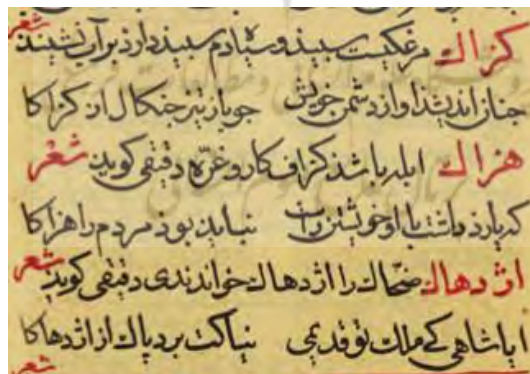 کراک مرغکیست سبید و سیاه دم سبید دارذ بر آب نشیند شعر
جنان اندیشذ او از دشمن خویش جو باز تیز جنکال از کراکا
هزاک ابله باشذ کزاف کار و غرّه دقیقی کوید شعر
که یارذ داشت با او خویشتن راست نبایذ بوذ مردم را هزاکا
اژدهاک ضحّاک را اژدهاک خواندندی دقیقی کوید شعر
ایا شاهی که ملک تو قدیمی نیاکت برد پاک از اژدهاکا
شعر